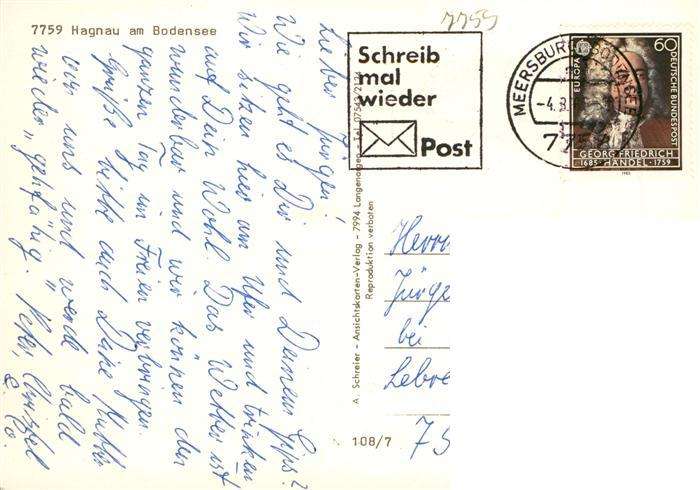 7759 Hagnau am Bodensee
Lieber Jürgen!
Wie geht es Dir und Deinem Gips?
Wir sitzen hier am Ufer und trinken
auf Dein Wohl. Das Wetter ist
wunderbar und wir können den
ganzen Tag im Freien verbringen.
Grüße bitte auch Deine Mutter
von uns und werde bald
wieder „gehfähig“. Peter,
& Co.
A. Schreier - Ansichtskarten-Verlag - 7994 Langenargen - Tel. 07543/2124
Reproduktion verboten
108/7
7755
Schreib
mal
wieder
Post
MEERSBURG, BODENSEE
-4.8.
775
60
EUROPA
DEUTSCHE BUNDESPOST
GEORG FRIEDRICH
1685 HÄNDEL 1759
1985
Herrn
Jürge
bei
Lebre
75